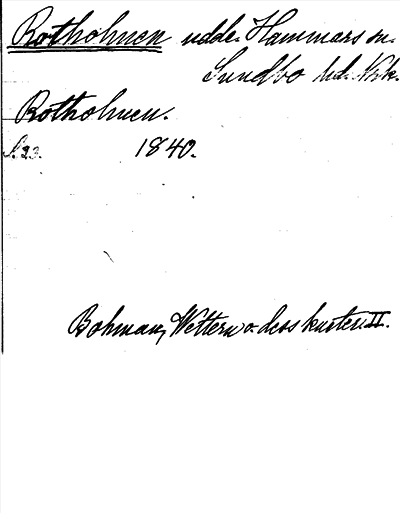 Rotholmen udde. Hammars sn.
Sundbo hd. Nrk.
Rotholmen.
S. 23. 1840.
Bohman, Wettern o. dess kuster II.